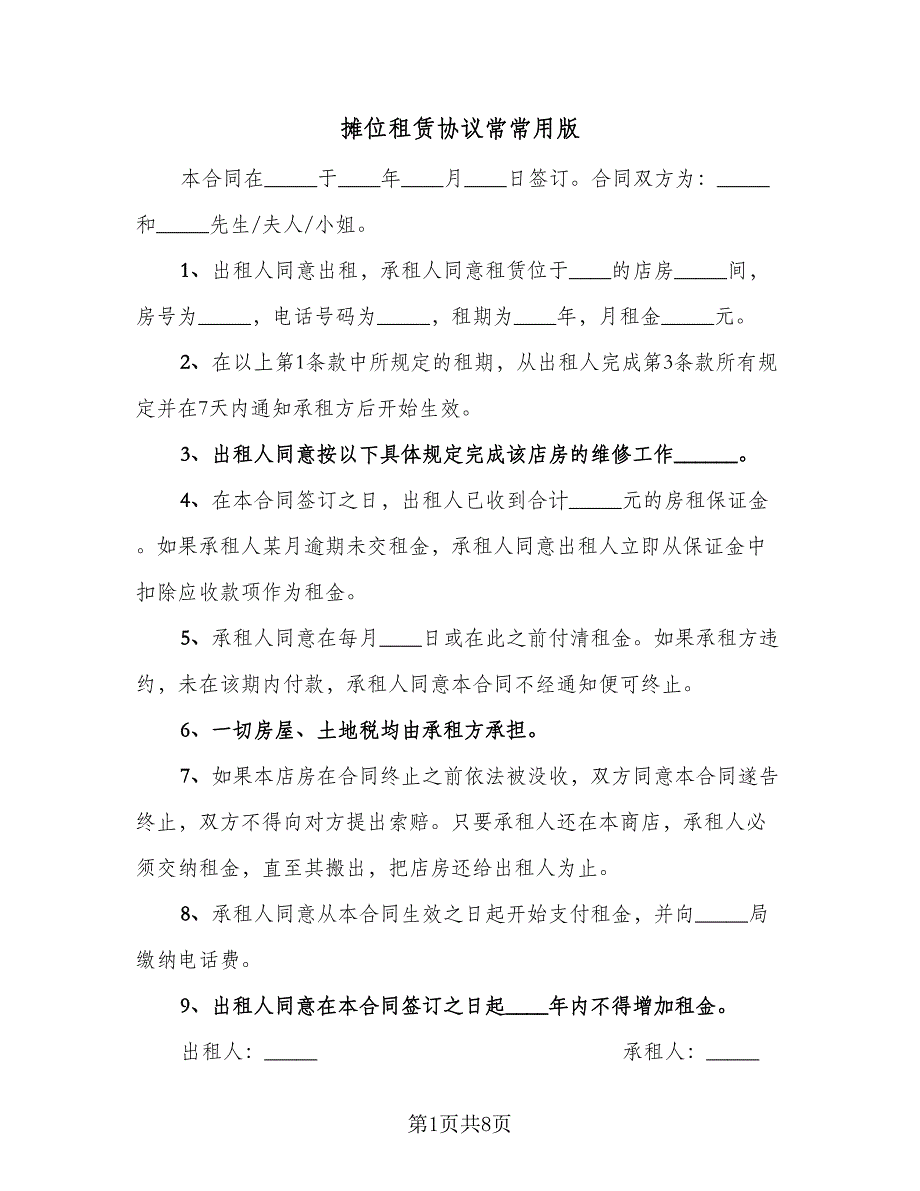 摊位租赁协议常常用版
本合同在_____于____年____月____日签订。合同双方为：_____
和_____先生/夫人/小姐。
1、出租人同意出租，承租人同意租赁位于____的店房_____间，
房号为_____，电话号码为_____，租期为____年，月租金_____元。
2、在以上第1条款中所规定的租期，从出租人完成第3条款所有规
定并在7天内通知承租方后开始生效。
3、出租人同意按以下具体规定完成该店房的维修工作______。
4、在本合同签订之日，出租人已收到合计_____元的房租保证金
。如果承租人某月逾期未交租金，承租人同意出租人立即从保证金中
扣除应收款项作为租金。
5、承租人同意在每月____日或在此之前付清租金。如果承租方违
约，未在该期内付款，承租人同意本合同不经通知便可终止。
6、一切房屋、土地税均由承租方承担。
7、如果本店房在合同终止之前依法被没收，双方同意本合同遂告
终止，双方不得向对方提出索赔。只要承租人还在本商店，承租人必
须交纳租金，直至其搬出，把店房还给出租人为止。
8、承租人同意从本合同生效之日起开始支付租金，并向_____局
缴纳电话费。
9、出租人同意在本合同签订之日起____年内不得增加租金。
出租人：_____ 承租人：_____
第1页共8页